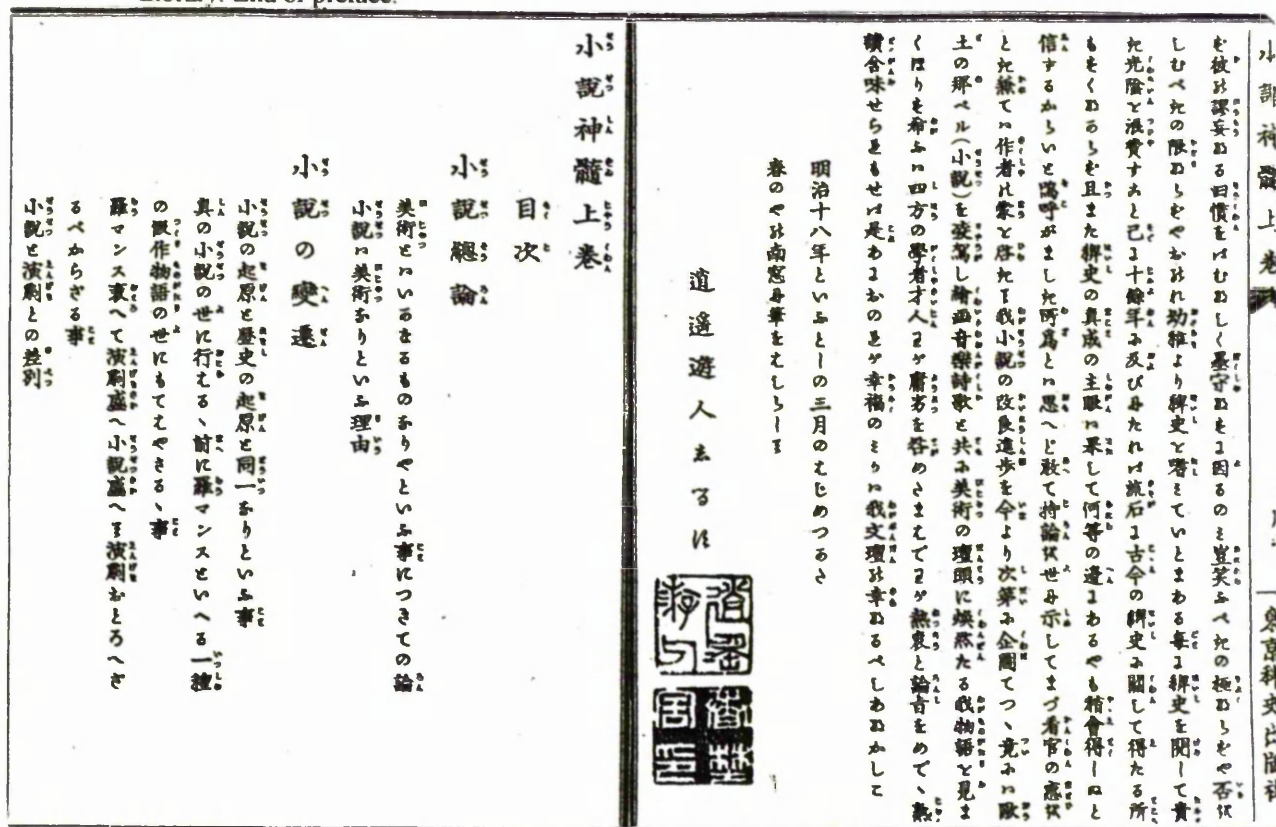 Library. End of preface.
小說神髓上卷
東京稗史出版社
を彼の謬妄なる旧慣をばむなしく墨守なせるに因るのみ豈笑ふべきの極ならずや否
しむべきの限ならずやおのれ幼稚より稗史を嗜みていとまある每に稗史を閱して貴
き光陰を浪費すること已に十餘年に及びにたれば流石に古今の稗史に關して得たる所
もすくなからず且また稗史の真成の主眼は果して何等の邊にあるやも稍會得しぬと
信ずるからいと嗚呼がましき所爲とは思へど敢て持論を世に示してまづ看官の惑を
とき兼ては作者の蒙を啓きて我小說の改良進步を今より次第に企圖てつゝ竟には歐
土の那ベル(小說)を凌駕し繪画音樂詩歌と共に美術の壇頭に煥然たる我物語を見ま
くほりす希ふは四方の學者才人わが庸劣を咎めたまはでわが熱衷と論旨をめでゝ熟
讀含味せられもせば是あにおのれが幸福のみかは我文壇の幸なるべしあなかしこ
明治十八年といふとしの三月のはじめつかた
春のやの南窓に筆をはしらして
逍遙遊人しるす
小說神髓上卷
目次
小說總論
美術といへるものゝなりやといふ事につきての論
小說は美術なりといふ理由
小說の變遷
小說の起原と歷史の起原と同一なりといふ事
真の小說の世に行はるゝ前に羅マンスといへる一種
の假作物語の世にもてはやさるゝ事
羅マンス衰へて演劇盛へ小說盛へて演劇おとろへざ
るべからざる事
小說と演劇との差別